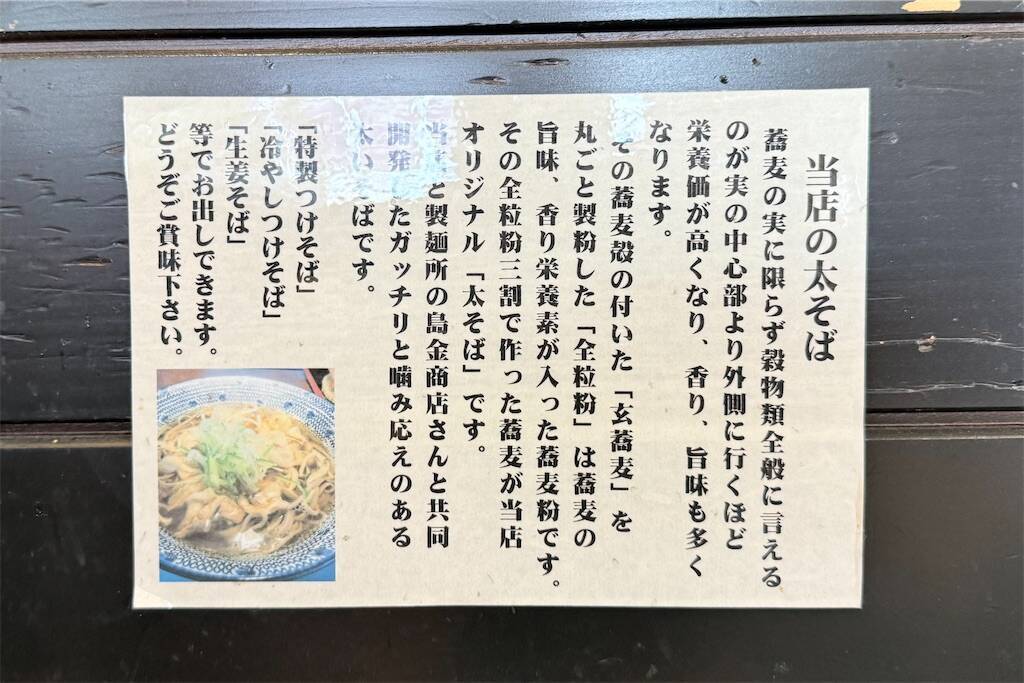 当店の太そば
蕎麦の実に限らず穀物類全般に言える
のが実の中心部より外側に行くほど
栄養価が高くなり、香り、旨味も多く
なります。
その蕎麦殻の付いた「玄蕎麦」を
丸ごと製粉した「全粒粉」は蕎麦の
旨味、香り栄養素が入った蕎麦粉です。
その全粒粉三割で作った蕎麦が当店
オリジナル「太そば」です。
当店と製麺所の鳥金商店さんと共同
開発したガッチリと噛み応えのある
太いそばです。
「特製つけそば」
「冷やしつけそば」
「生姜そば」
等でお出しできます。
どうぞご賞味下さい。